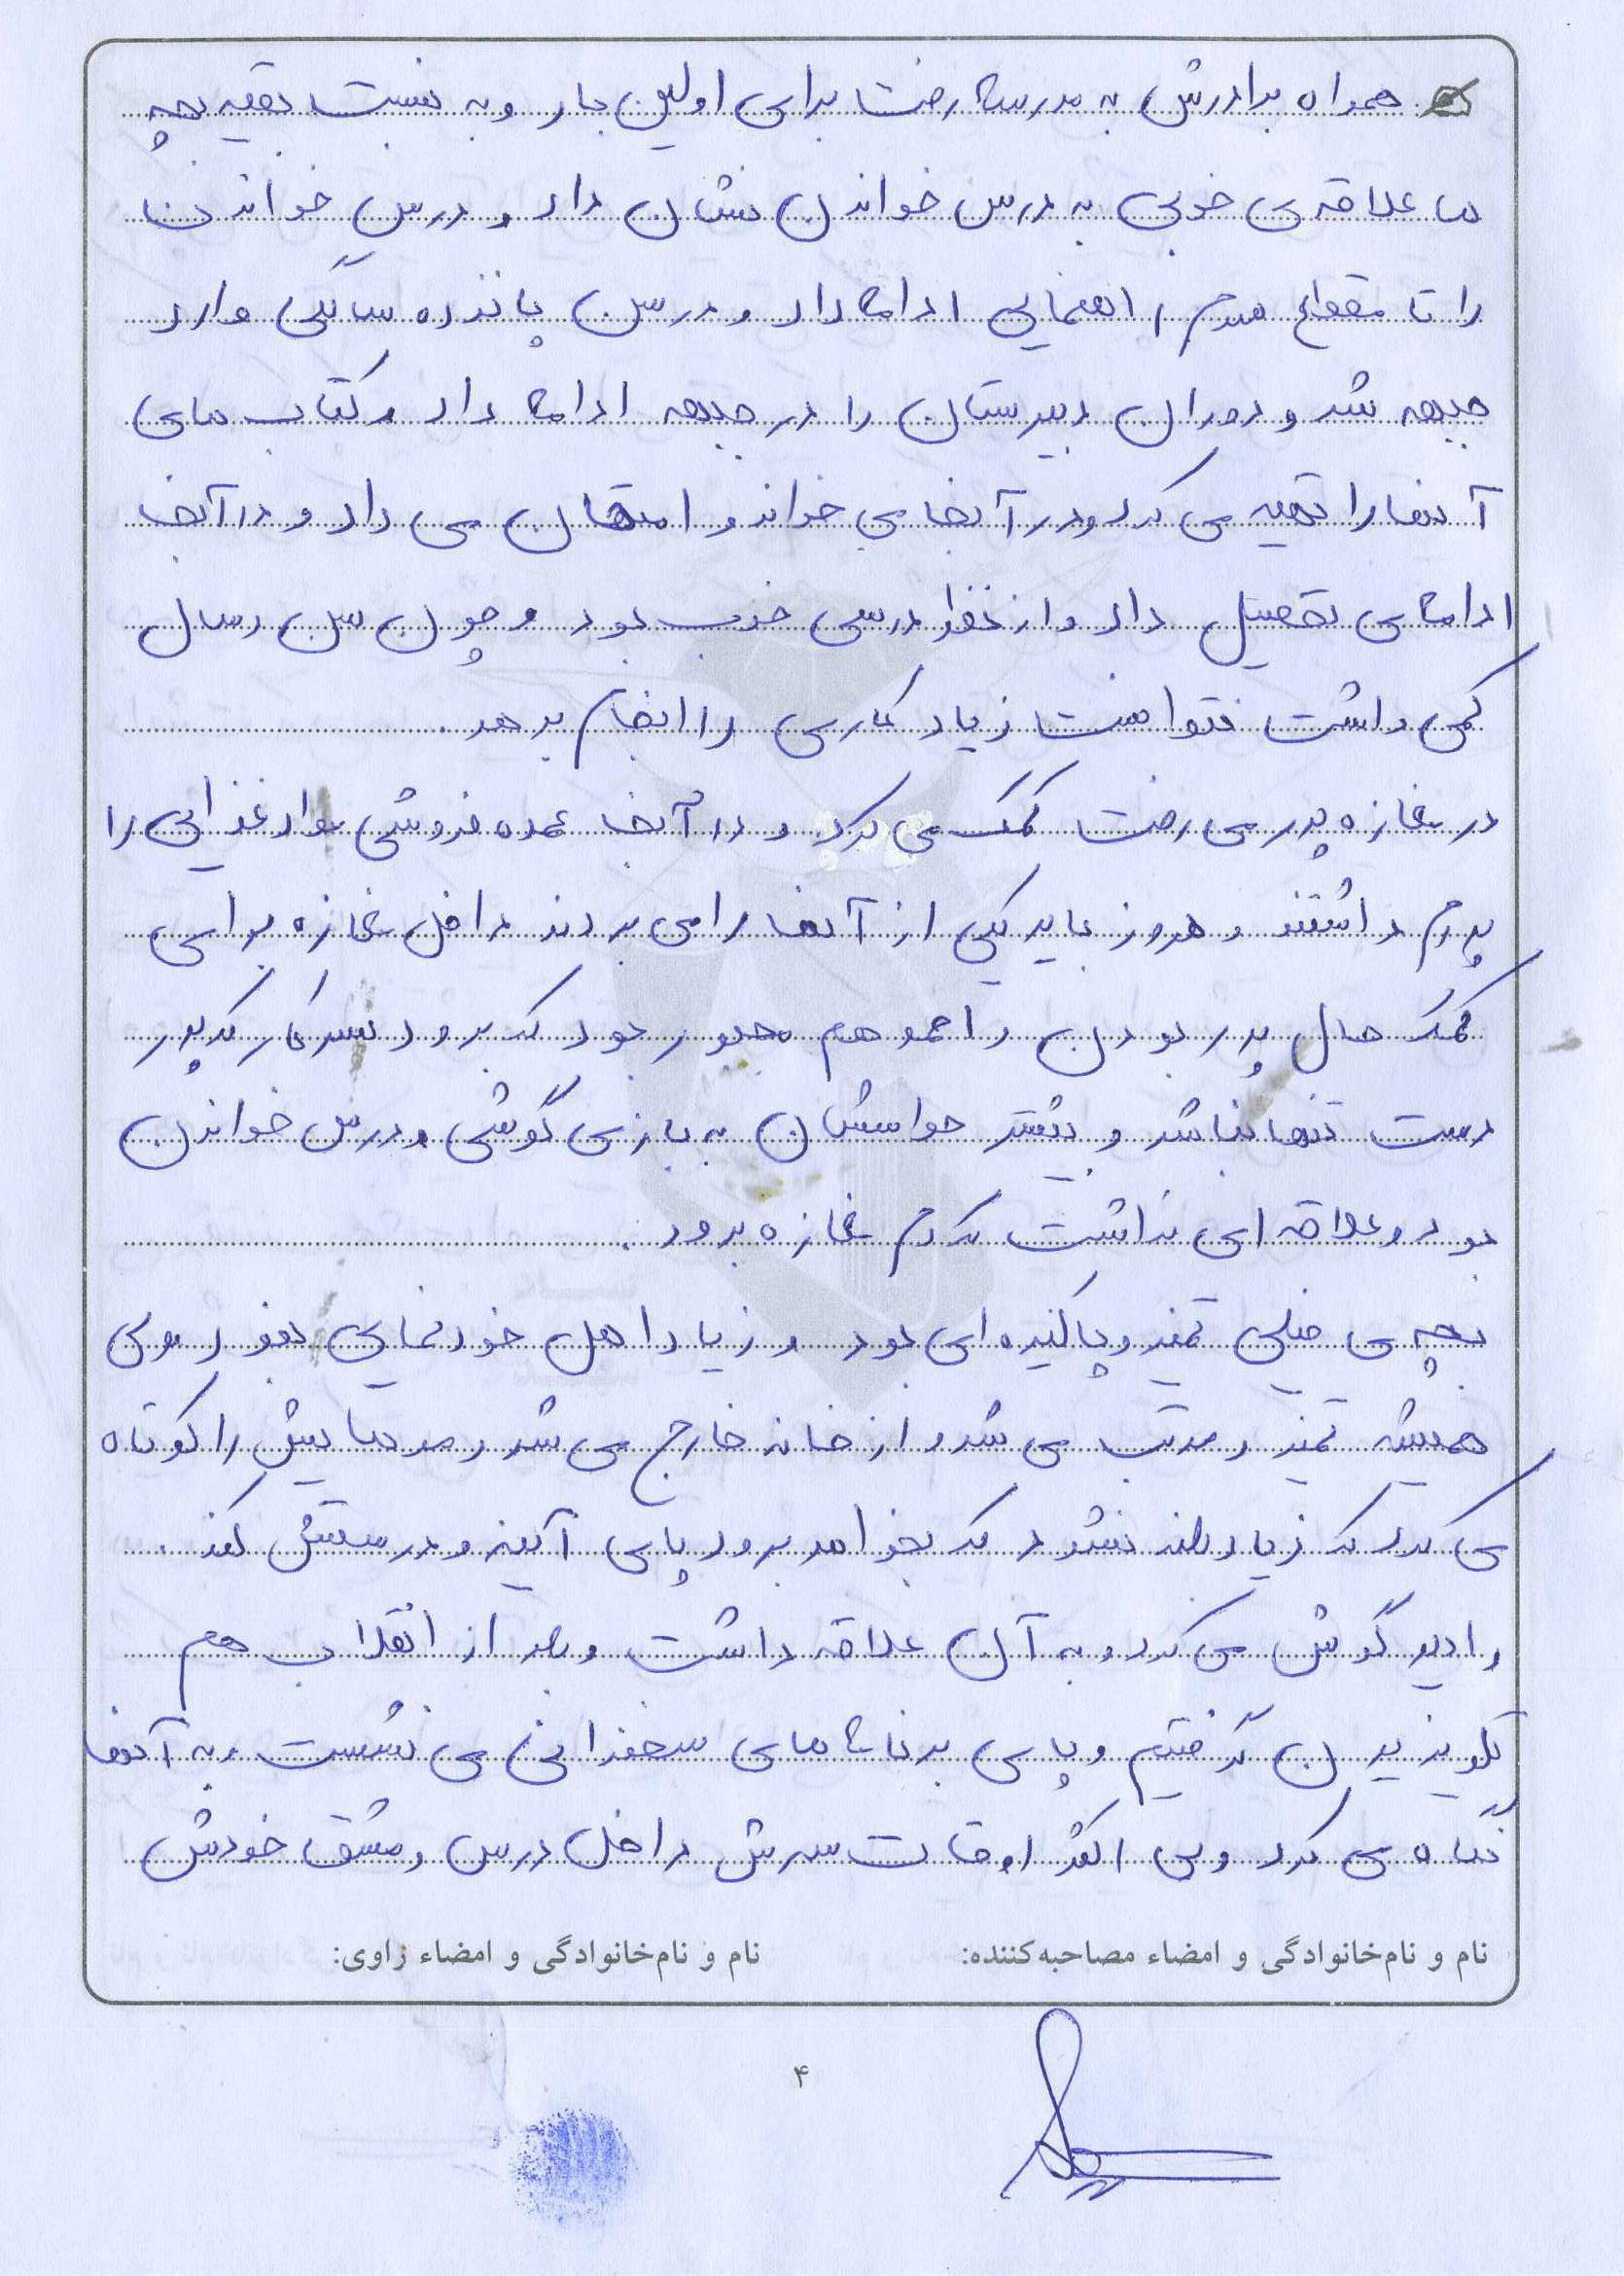 همراه برادرش به مدرسه رفت برای اولین بار و به نسبت بقیه بچه
ها علاقه ی خوبی به درس خواندن نشان داد و درس خواندن
را تا مقطع سوم راهنمایی ادامه داد و در سن پانزده سالگی وارد
جبهه شد و دوران دبیرستان را در جبهه ادامه داد و کتاب های
آنها را تهیه می کرد و در آنجا می خواند و امتحان می داد و در آنجا
ادامه ی تحصیل داد و از نظر درسی خوب بود و چون سن و سال
کمی داشت نتوانست زیاد کاری را انجام بدهد .
در مغازه پدر می رفت کمک می کرد و در آنجا عمده فروشی مواد غذایی را
پدرم داشتند و هر روز باید یکی از آنها را می بردند داخل مغازه برای
کمک حال پدر بودن و احمد هم مجبور بود که برود سر کار که پدر
دست تنها نباشد و بیشتر حواسشان به بازی گوشی و درس خواندن
بود و علاقه ای نداشت که دم مغازه برود .
بچه ی خیلی تمیز و پاکیزه ای بود و زیاد اهل خودنمایی نبود ولی
همیشه تمیز و مرتب می شد و از خانه خارج می شد و موهایش را کوتاه
می کرد که زیاد بلند نشود که بخواهد برود پای آینه و درستش کند .
رادیو گوش می کرد و به آن علاقه داشت و بعد از انقلاب هم
تلویزیون گرفتیم و پای برنامه های سخنرانی می نشست و به آنها
نگاه می کرد ولی اکثر اوقات سرش داخل درس و مشق خودش
نام و نام‌خانوادگی و امضاء مصاحبه‌کننده:
نام و نام‌خانوادگی و امضاء راوی:
۴